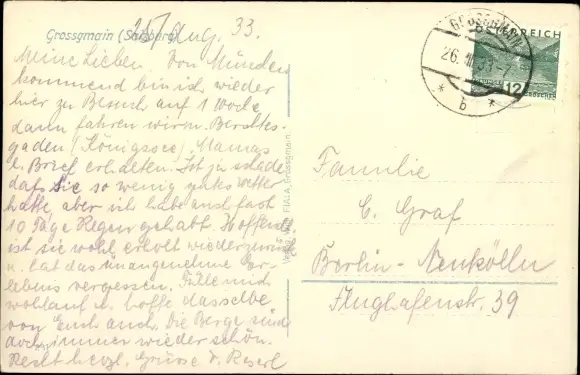 Grossgmain (Salzburg)
25/Aug. 33.
Meine Lieben. Von München
kommend bin ich wieder
hier zu Besuch auf 1 Woche
dann fahren wir n. Berchtes-
gaden (Königssee). Mamas
l. Brief erhalten. Ist ja schade
daß Sie so wenig gutes Wetter
hatte, aber ich hab auch fast
10 Tage Regen gehabt. Hoffentl.
ist sie wohl erholt wieder zurück
u. hat das unangenehme Er-
lebnis vergessen. Fühle mich
wohlauf u. hoffe dasselbe
von Euch auch. Die Berge sind
doch immer wieder schön.
Recht herzl. Grüsse v. Reserl
Verlag FIALA, Grossgmain
GROSSGMAIN
26. VIII. 33
* b *
ÖSTERREICH
12
GROSCHEN
Familie
C. Graf
Berlin-Neukölln
Flughafenstr. 39